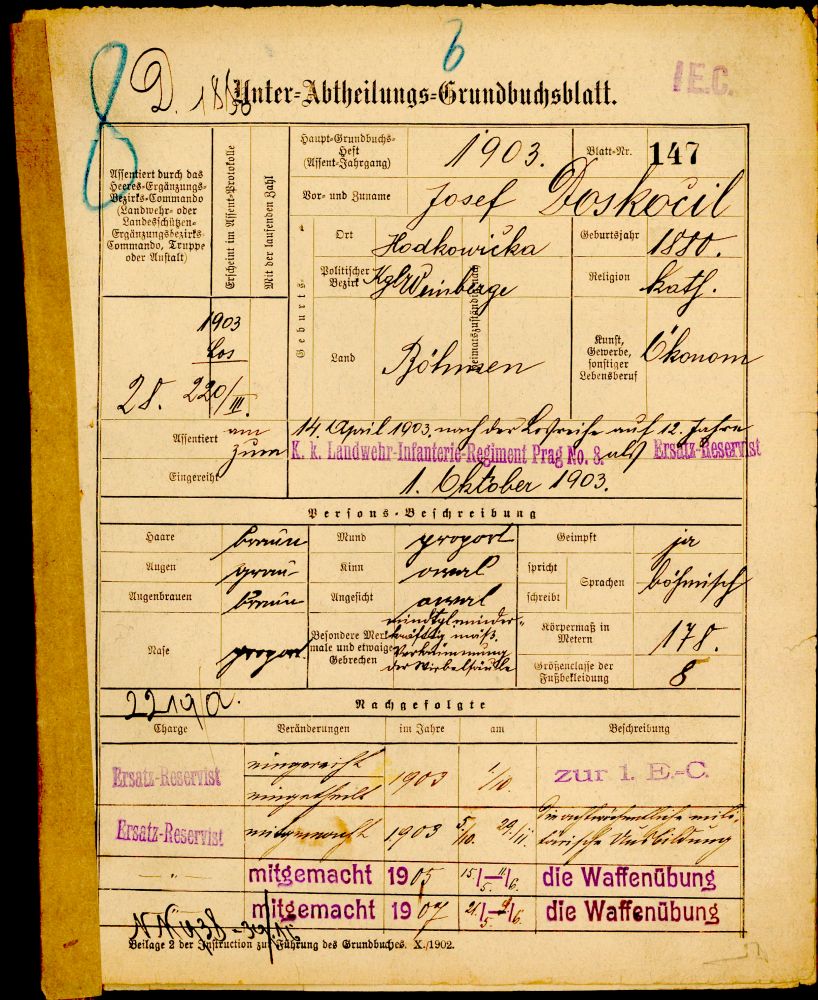 8
6
I E.C.
D. 18/38
Unter-Abtheilungs-Grundbuchsblatt.
Assentiert durch das
Heeres-Ergänzungs-
Bezirks-Commando
(Landwehr- oder
Landesschützen-
Ergänzungsbezirks-
Commando, Truppe
oder Anstalt)
Erscheint im Assent-Protokolle
Mit der laufenden Zahl
Haupt-Grundbuchs-
Heft
(Assent-Jahrgang)
1903.
Blatt-Nr. 147
Vor- und Zuname Josef Doskočil
Geburts-
Ort Hodkowička
Geburtsjahr 1880.
Politischer
Bezirk Kgl Weinberge
Heimatszuständig nach
Religion kath.
Land Böhmen
Kunst,
Gewerbe,
sonstiger
Lebensberuf
Ökonom
1903
Los
28. 220/III.
Assentiert am 14. April 1903. nach der Losreihe auf 12. Jahre
zum K. k. Landwehr-Infanterie-Regiment Prag No. 8. als Ersatz-Reservist
Eingereiht 1. Oktober 1903.
Persons-Beschreibung
Haare braun Mund proport Geimpft ja
Augen grau Kinn oval spricht
Sprachen böhmisch
Augenbrauen braun Angesicht oval schreibt
Nase proport.
Besondere Merk-
male und etwaige
Gebrechen
minder-
kräftig mäß.
Verkrümmung
der Wirbelsäule
Körpermaß in
Metern 178.
Größenclasse der
Fußbekleidung 8
2219/a.
Nachgefolgte
Charge Veränderungen im Jahre am Beschreibung
Ersatz-Reservist eingereiht
eingetheilt 1903 1/10. zur 1. E.-C.
Ersatz-Reservist mitgemacht 1903 5/10. 29/11. die achtwöchentliche mili-
tärische Ausbildung
-"- mitgemacht 1905 15/5.–11/6. die Waffenübung
mitgemacht 1907 21/5.–/6. die Waffenübung
Beilage 2 der Instruction zur Führung des Grundbuches. X./1902.